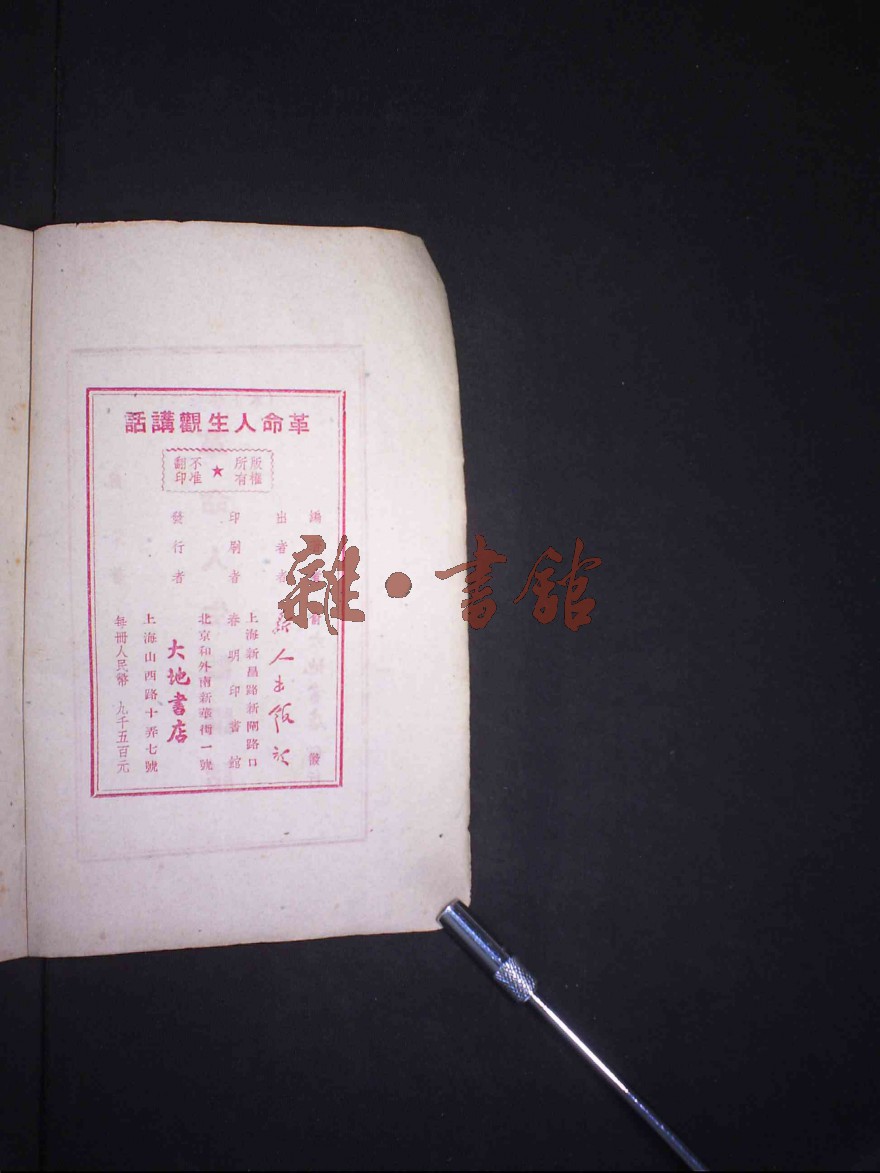 革命人生觀講話
版權所有★不准翻印
編
出者
新人出版社
印刷者
上海新昌路新閘路口
春明印書館
發行者
北京和外南新華街一號
大地書店
上海山西路十弄七號
每冊人民幣 九千五百元
雜·書館